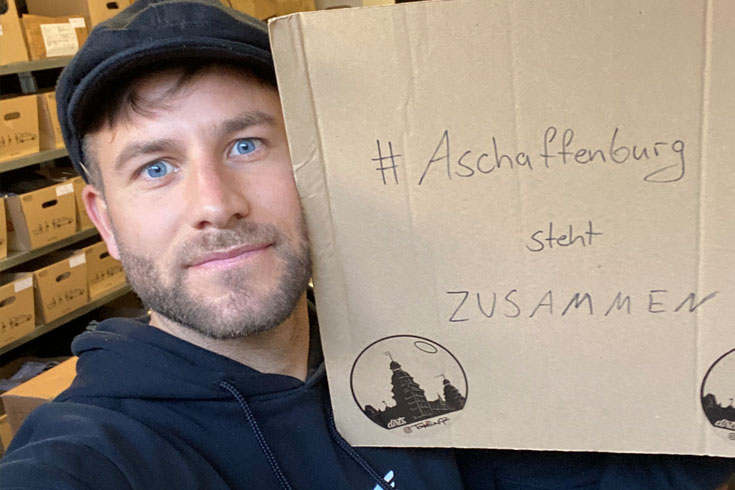 #Aschaffenburg
steht
ZUSAMMEN